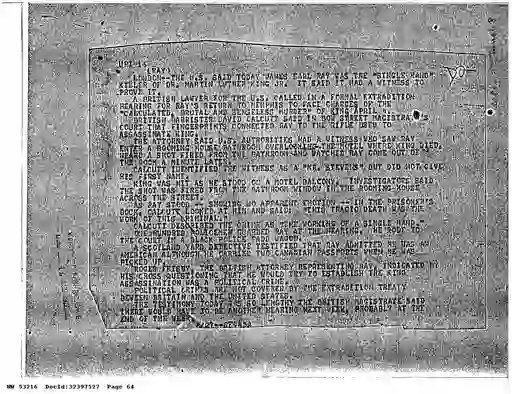 UPI-14
(RAY)
LONDON--THE U.S. SAID TODAY JAMES EARL RAY WAS THE "SINGLE HAND"
KILLER OF DR. MARTIN LUTHER KING JR. IT SAID IT HAD A WITNESS TO
PROVE IT.
A BRITISH LAWYER FOR THE U.S. CALLED IN A FORMAL EXTRADITION
HEARING FOR RAY'S RETURN TO MEMPHIS TO FACE CHARGES OF THE
"CALCULATED, BRUTAL MURDER" OF KING APRIL 4.
BRITISH BARRISTER DAVID CALCUTT SAID IN BOW STREET MAGISTRATE'S
COURT THAT FINGERPRINTS CONNECTED RAY TO THE RIFLE USED TO
ASSASSINATE KING.
THE ATTORNEY SAID U.S. AUTHORITIES HAD A WITNESS WHO SAW RAY
ENTER A ROOMING HOUSE BATHROOM OVERLOOKING THE MOTEL WHERE KING DIED,
HEARD A SHOT FIRED FROM THE BATHROOM AND WATCHED RAY COME OUT OF
THE ROOM A MINUTE LATER.
CALCUTT IDENTIFIED THE WITNESS AS A "MR. STEVENS" BUT DID NOT GIVE
HIS FIRST NAME.
KING WAS HIT AS HE STOOD ON A MOTEL BALCONY. INVESTIGATORS SAID
THE SHOT WAS FIRED FROM THE BATHROOM WINDOW IN THE ROOMING HOUSE
ACROSS THE STREET.
AS RAY STOOD -- SHOWING NO APPARENT EMOTION -- IN THE PRISONER'S
DOCK, CALCUTT LOOKED AT HIM AND SAID: "THIS TRAGIC DEATH WAS THE
WORK OF THIS CRIMINAL."
CALCUTT DESCRIBED THE CRIME AS "THE WORKING OF A SINGLE HAND."
A HUNDRED POLICEMEN GUARDED RAY AT THE HEARING. HE RODE TO
THE COURT IN A BLACK POLICE VAN
A SCOTLAND YARD DETECTIVE TESTIFIED THAT RAY ADMITTED HE WAS AN
AMERICAN ALTHOUGH HE CARRIED TWO CANADIAN PASSPORTS WHEN HE WAS
PICKED UP.
ROGER FRISBY, THE BRITISH ATTORNEY REPRESENTING RAY, INDICATED BY
HIS CROSS QUESTIONING THAT HE WOULD TRY TO ESTABLISH THE KING
ASSASSINATION WAS A POLITICAL CRIME.
POLITICAL CRIMES ARE NOT COVERED BY THE EXTRADITION TREATY
BETWEEN BRITAIN AND THE UNITED STATES.
THE TESTIMONY TODAY WAS SO LENGTHY THE BRITISH MAGISTRATE SAID
THERE WOULD HAVE TO BE ANOTHER HEARING NEXT WEEK, PROBABLY AT THE
END OF THE WEEK.
6/27
NW 53216 DocId:32397527 Page 64